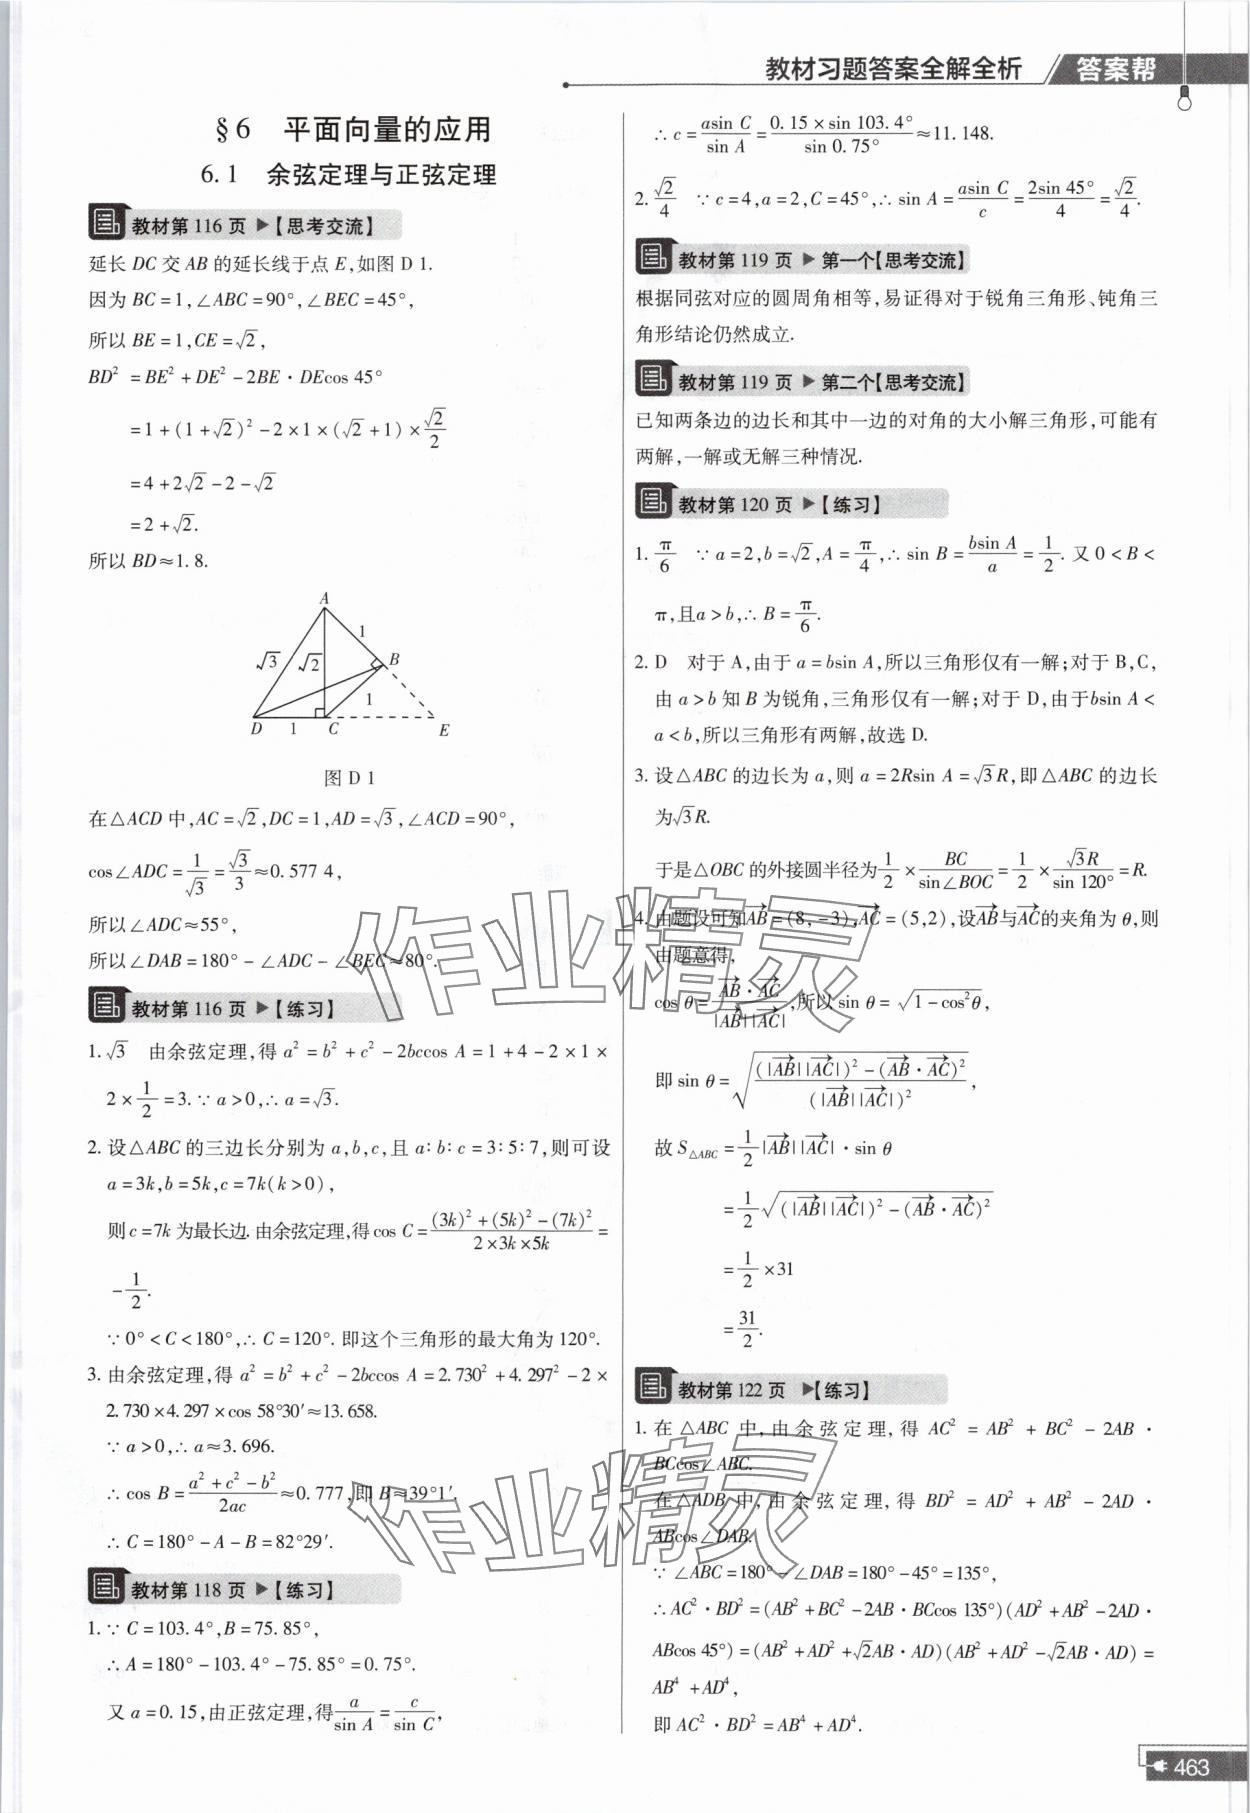 教材习题答案全解全析 答案帮
§6 平面向量的应用
6.1 余弦定理与正弦定理
教材第116页 ▶【思考交流】
延长DC交AB的延长线于点E,如图D1.
因为BC=1,∠ABC=90°,∠BEC=45°,
所以BE=1,CE=√2,
BD²=BE²+DE²-2BE·DEcos 45°
=1+(1+√2)²-2×1×(√2+1)×√2/2
=4+2√2-2-√2
=2+√2.
所以BD≈1.8.
A
1
√3 √2
B
1
D 1 C E
图D1
在△ACD中,AC=√2,DC=1,AD=√3,∠ACD=90°,
cos∠ADC=1/√3=√3/3≈0.577 4,
所以∠ADC≈55°,
所以∠DAB=180°-∠ADC-∠BEC≈80°.
教材第116页 ▶【练习】
1.√3 由余弦定理,得a²=b²+c²-2bccos A=1+4-2×1×
2×1/2=3.∵a>0,∴a=√3.
2.设△ABC的三边长分别为a,b,c,且a∶b∶c=3∶5∶7,则可设
a=3k,b=5k,c=7k(k>0),
则c=7k为最长边.由余弦定理,得cos C=((3k)²+(5k)²-(7k)²)/(2×3k×5k)=
-1/2.
∵0°<C<180°,∴C=120°.即这个三角形的最大角为120°.
3.由余弦定理,得a²=b²+c²-2bccos A=2.730²+4.297²-2×
2.730×4.297×cos 58°30′≈13.658.
∵a>0,∴a≈3.696.
∴cos B=(a²+c²-b²)/(2ac)≈0.777,即B≈39°1′.
∴C=180°-A-B=82°29′.
教材第118页 ▶【练习】
1.∵C=103.4°,B=75.85°,
∴A=180°-103.4°-75.85°=0.75°.
又a=0.15,由正弦定理,得a/sin A=c/sin C,
∴c=asin C/sin A=0.15×sin 103.4°/sin 0.75°≈11.148.
2.√2/4 ∵c=4,a=2,C=45°,∴sin A=asin C/c=2sin 45°/4=√2/4.
教材第119页 ▶ 第一个【思考交流】
根据同弦对应的圆周角相等,易证得对于锐角三角形、钝角三
角形结论仍然成立.
教材第119页 ▶ 第二个【思考交流】
已知两条边的边长和其中一边的对角的大小解三角形,可能有
两解,一解或无解三种情况.
教材第120页 ▶【练习】
1.π/6 ∵a=2,b=√2,A=π/4,∴sin B=bsin A/a=1/2.又0<B<
π,且a>b,∴B=π/6.
2.D 对于A,由于a=bsin A,所以三角形仅有一解;对于B,C,
由a>b知B为锐角,三角形仅有一解;对于D,由于bsin A<
a<b,所以三角形有两解,故选D.
3.设△ABC的边长为a,则a=2Rsin A=√3R,即△ABC的边长
为√3R.
于是△OBC的外接圆半径为1/2×BC/sin∠BOC=1/2×√3R/sin 120°=R.
4.由题设可知AB→=(8,-3),AC→=(5,2),设AB→与AC→的夹角为θ,则
由题意得,
cos θ=(AB→·AC→)/(|AB→||AC→|),所以sin θ=√(1-cos²θ),
即sin θ=√(((|AB→||AC→|)²-(AB→·AC→)²)/(|AB→||AC→|)²),
故S△ABC=1/2|AB→||AC→|·sin θ
=1/2√((|AB→||AC→|)²-(AB→·AC→)²)
=1/2×31
=31/2.
教材第122页 ▶【练习】
1.在△ABC中,由余弦定理,得AC²=AB²+BC²-2AB·
BCcos∠ABC.
在△ADB中,由余弦定理,得BD²=AD²+AB²-2AD·
ABcos∠DAB.
∵∠ABC=180°-∠DAB=180°-45°=135°,
∴AC²·BD²=(AB²+BC²-2AB·BCcos 135°)(AD²+AB²-2AD·
ABcos 45°)=(AB²+AD²+√2AB·AD)(AB²+AD²-√2AB·AD)=
AB⁴+AD⁴,
即AC²·BD²=AB⁴+AD⁴.
463
作业精灵
作业精灵